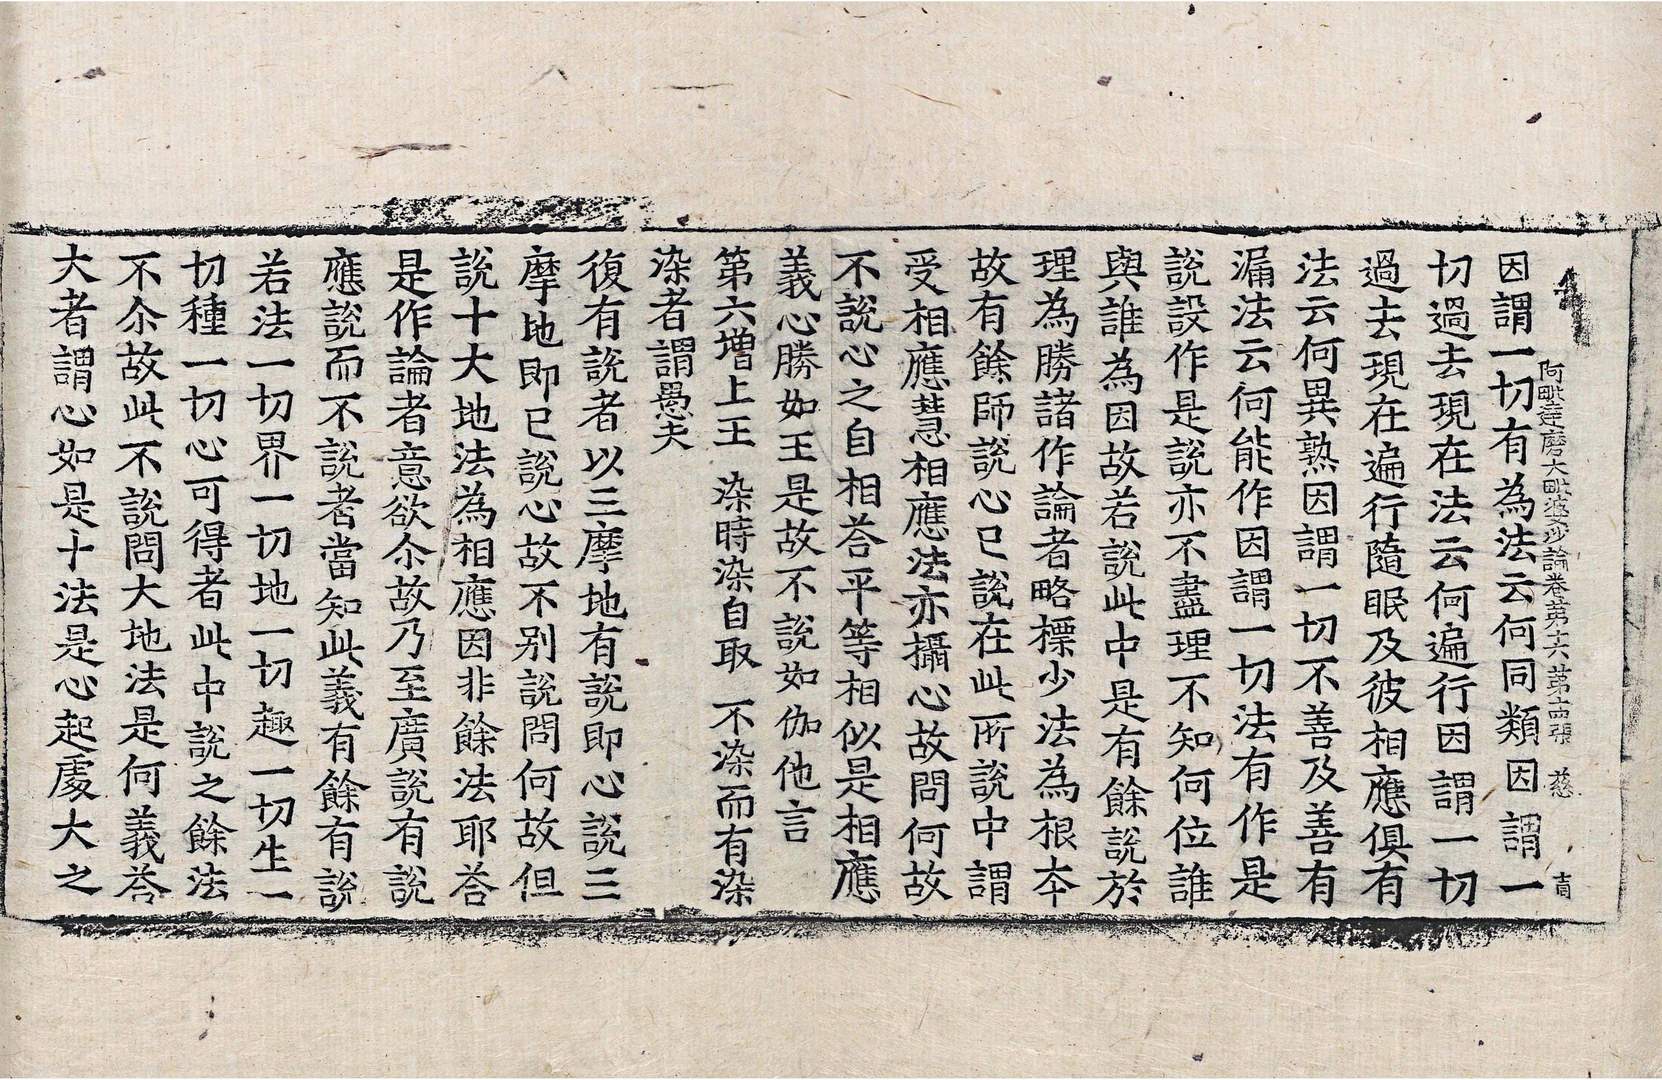 阿毗達磨大毗婆沙論卷第十六 第十六張 慈
因謂一切有為法云何同類因謂一
切過去現在法云何遍行因謂一切
過去現在遍行隨眠及彼相應俱有
法云何異熟因謂一切不善及善有
漏法云何能作因謂一切法有作是
說設作是說亦不盡理不知何位誰
與誰為因故若說此中是有餘說於
理為勝諸作論者略摽少法為根本
故有餘師說心已說在此所說中謂
受相應慧相應法亦攝心故問何故
不說心之自相荅平等相似是相應
義心勝如王是故不說如伽他言
第六增上王 染時染自取 不染而有染
染者謂愚夫
復有說者以三摩地有說即心說三
摩地即已說心故不別說問何故但
說十大地法為相應因非餘法耶荅
是作論者意欲尒故乃至廣說有說
應說而不說者當知此義有餘有說
若法一切界一切地一切趣一切生一
切種一切心可得者此中說之餘法
不尒故此不說問大地法是何義荅
大者謂心如是十法是心起處大之